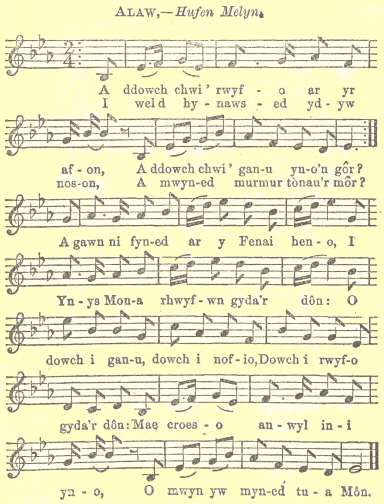 ALAW,—Hufen Melyn.
2/4
A ddowch chwi' rwyf - o ar yr
I weld hy - naws - ed yd - yw
af - on, A ddowch chwi' gan-u yn-o'n gôr?
nos-on, A mwyn-ed murmur tonau'r môr?
A gawn ni fyned ar y Fenai hen-o, I
Yn-ys Mon-a rhwyf-wn gyda'r dôn: O
dowch i gan-u, dowch i nof-io, Dowch i rwyf-o
gyda'r dôn: Mae croes-o an-wyl in-i
yn-o, O mwyn yw myn-ed tu-a Môn.